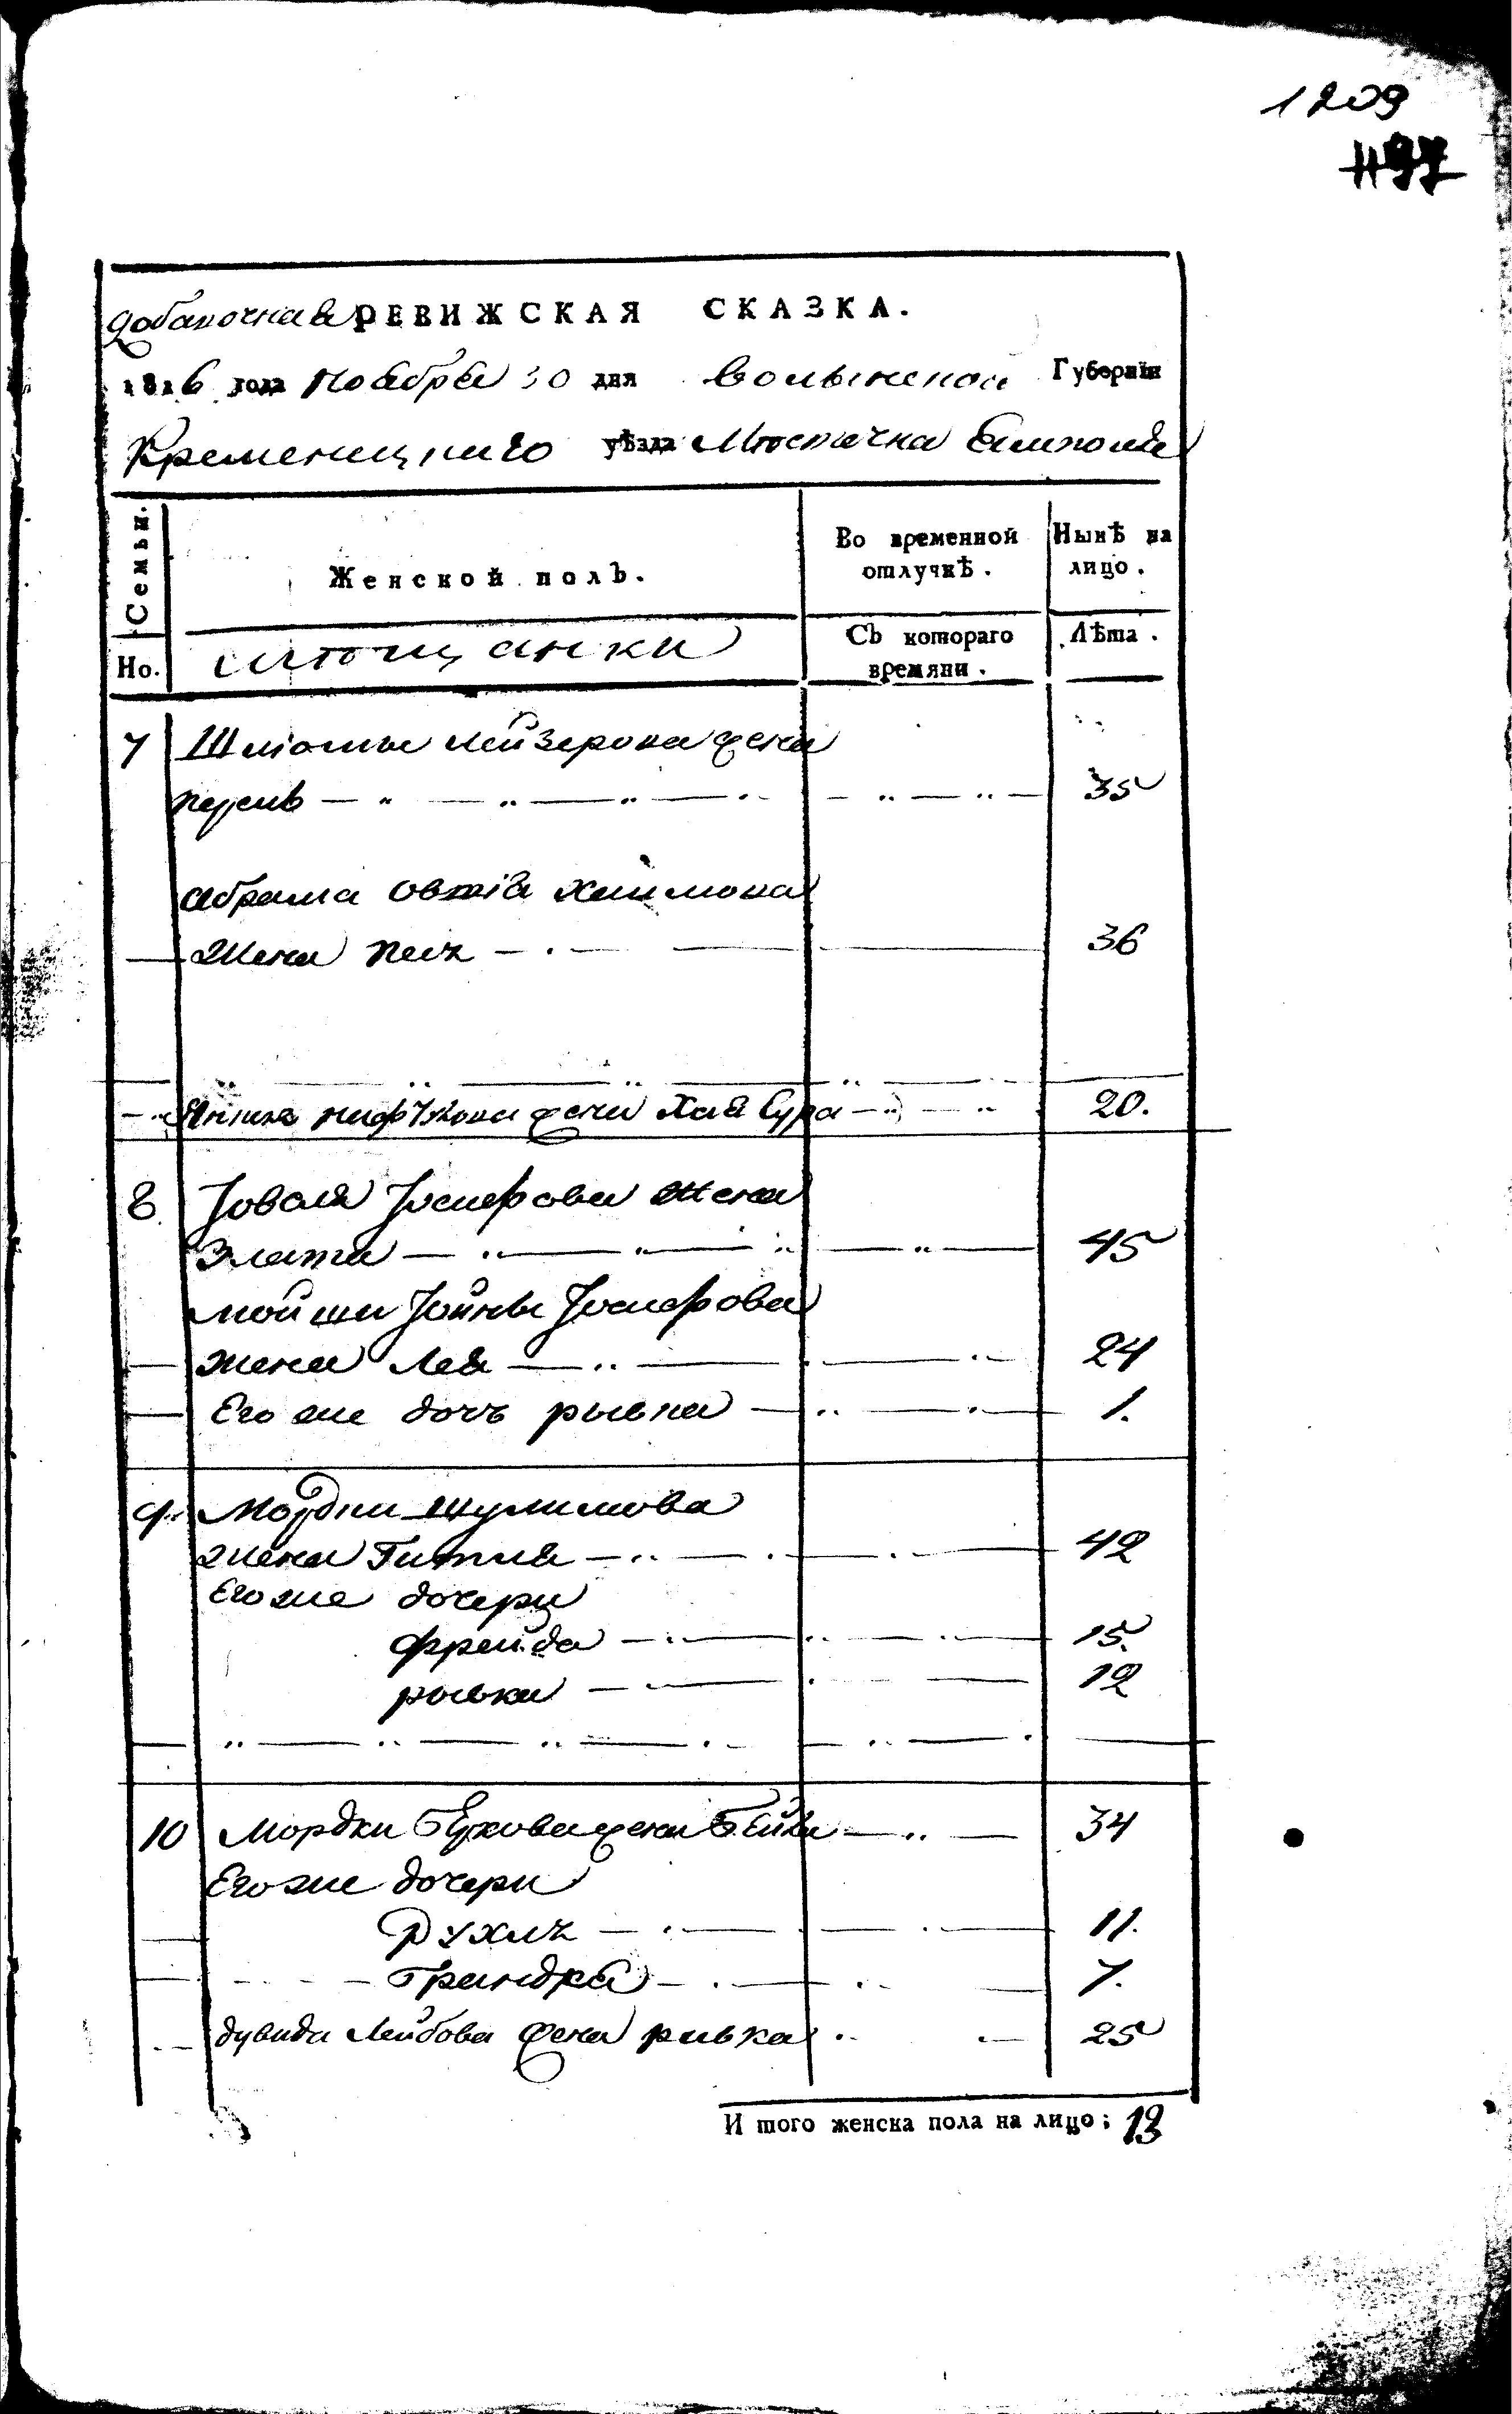 1209
1197
добавочная РЕВИЖСКАЯ СКАЗКА.
1816 года Ноября 30 дня Волынской Губерніи
Кременицкаго уѣзда Мѣстечка Ямполя
Семьи.
Женской полъ.
Во временной отлучкѣ.
Нынѣ на лицо.
Но.
мѣщанки
Съ котораго времяни.
Лѣта.
7 Шліомы Лейзерова жена
35
Абрама Овшія Хаимова
Жена Песя 36
жена Хая Сура 20.
8 Іовеля Іосифова жена
Злата 45
Мойши Іойны Іосифова
жена Лея 24
Его же дочь рывка 1.
9 Мордки Шулимова
Жена Гитля 42
Его же дочери
Фрейда 15.
рывка 12
10 Мордки Беркова жена Бейла 34
Его же дочери
Рухля 11.
7.
дувида Лейбова жена ривка 25
И того женска пола на лицо; 13